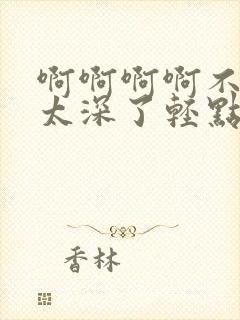 啊啊啊啊不
太深了輕點
香林